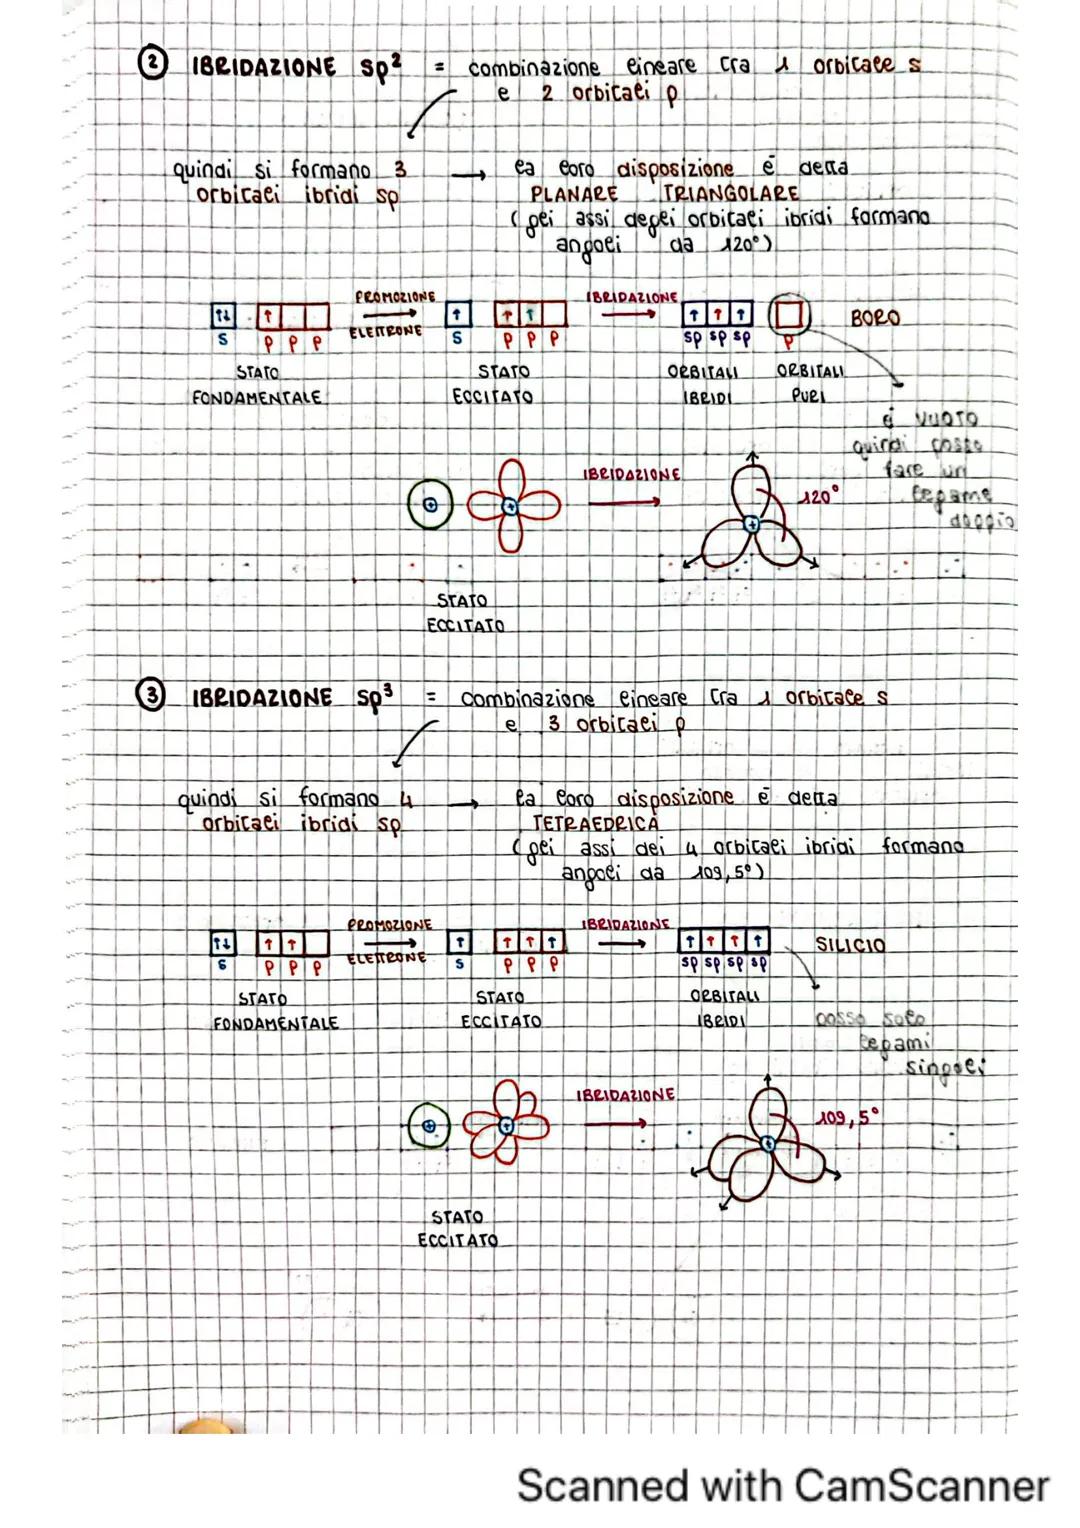 2 IBRIDAZIONE sp² = combinazione lineare tra 1 orbitale s
e 2 orbitali p
quindi si formano 3 → la loro disposizione è detta
orbitali ibridi sp PLANARE TRIANGOLARE
(gli assi degli orbitali ibridi formano
angoli da 120°)
PROMOZIONE IBRIDAZIONE
↑↓ ↑ → ↑ ↑ ↑ → ↑ ↑ ↑ BORO
ELETTRONE
S P P P S P P P sp sp sp P
STATO STATO ORBITALI ORBITALI
FONDAMENTALE ECCITATO IBRIDI PURI
è VUOTO
quindi posso
fare un
legame
doppio
IBRIDAZIONE
120°
+ + +
STATO
ECCITATO
3 IBRIDAZIONE sp³ = combinazione lineare tra 1 orbitale s
e 3 orbitali p
quindi si formano 4 → la loro disposizione è detta
orbitali ibridi sp TETRAEDRICA
(gli assi dei 4 orbitali ibridi formano
angoli da 109,5°)
PROMOZIONE IBRIDAZIONE
↑↓ ↑ ↑ → ↑ ↑ ↑ ↑ → ↑ ↑ ↑ ↑ SILICIO
ELETTRONE
S P P P S P P P sp sp sp sp
STATO STATO ORBITALI
FONDAMENTALE ECCITATO IBRIDI
posso solo
legami
singoli
IBRIDAZIONE
109,5°
+ + +
STATO
ECCITATO
Scanned with CamScanner